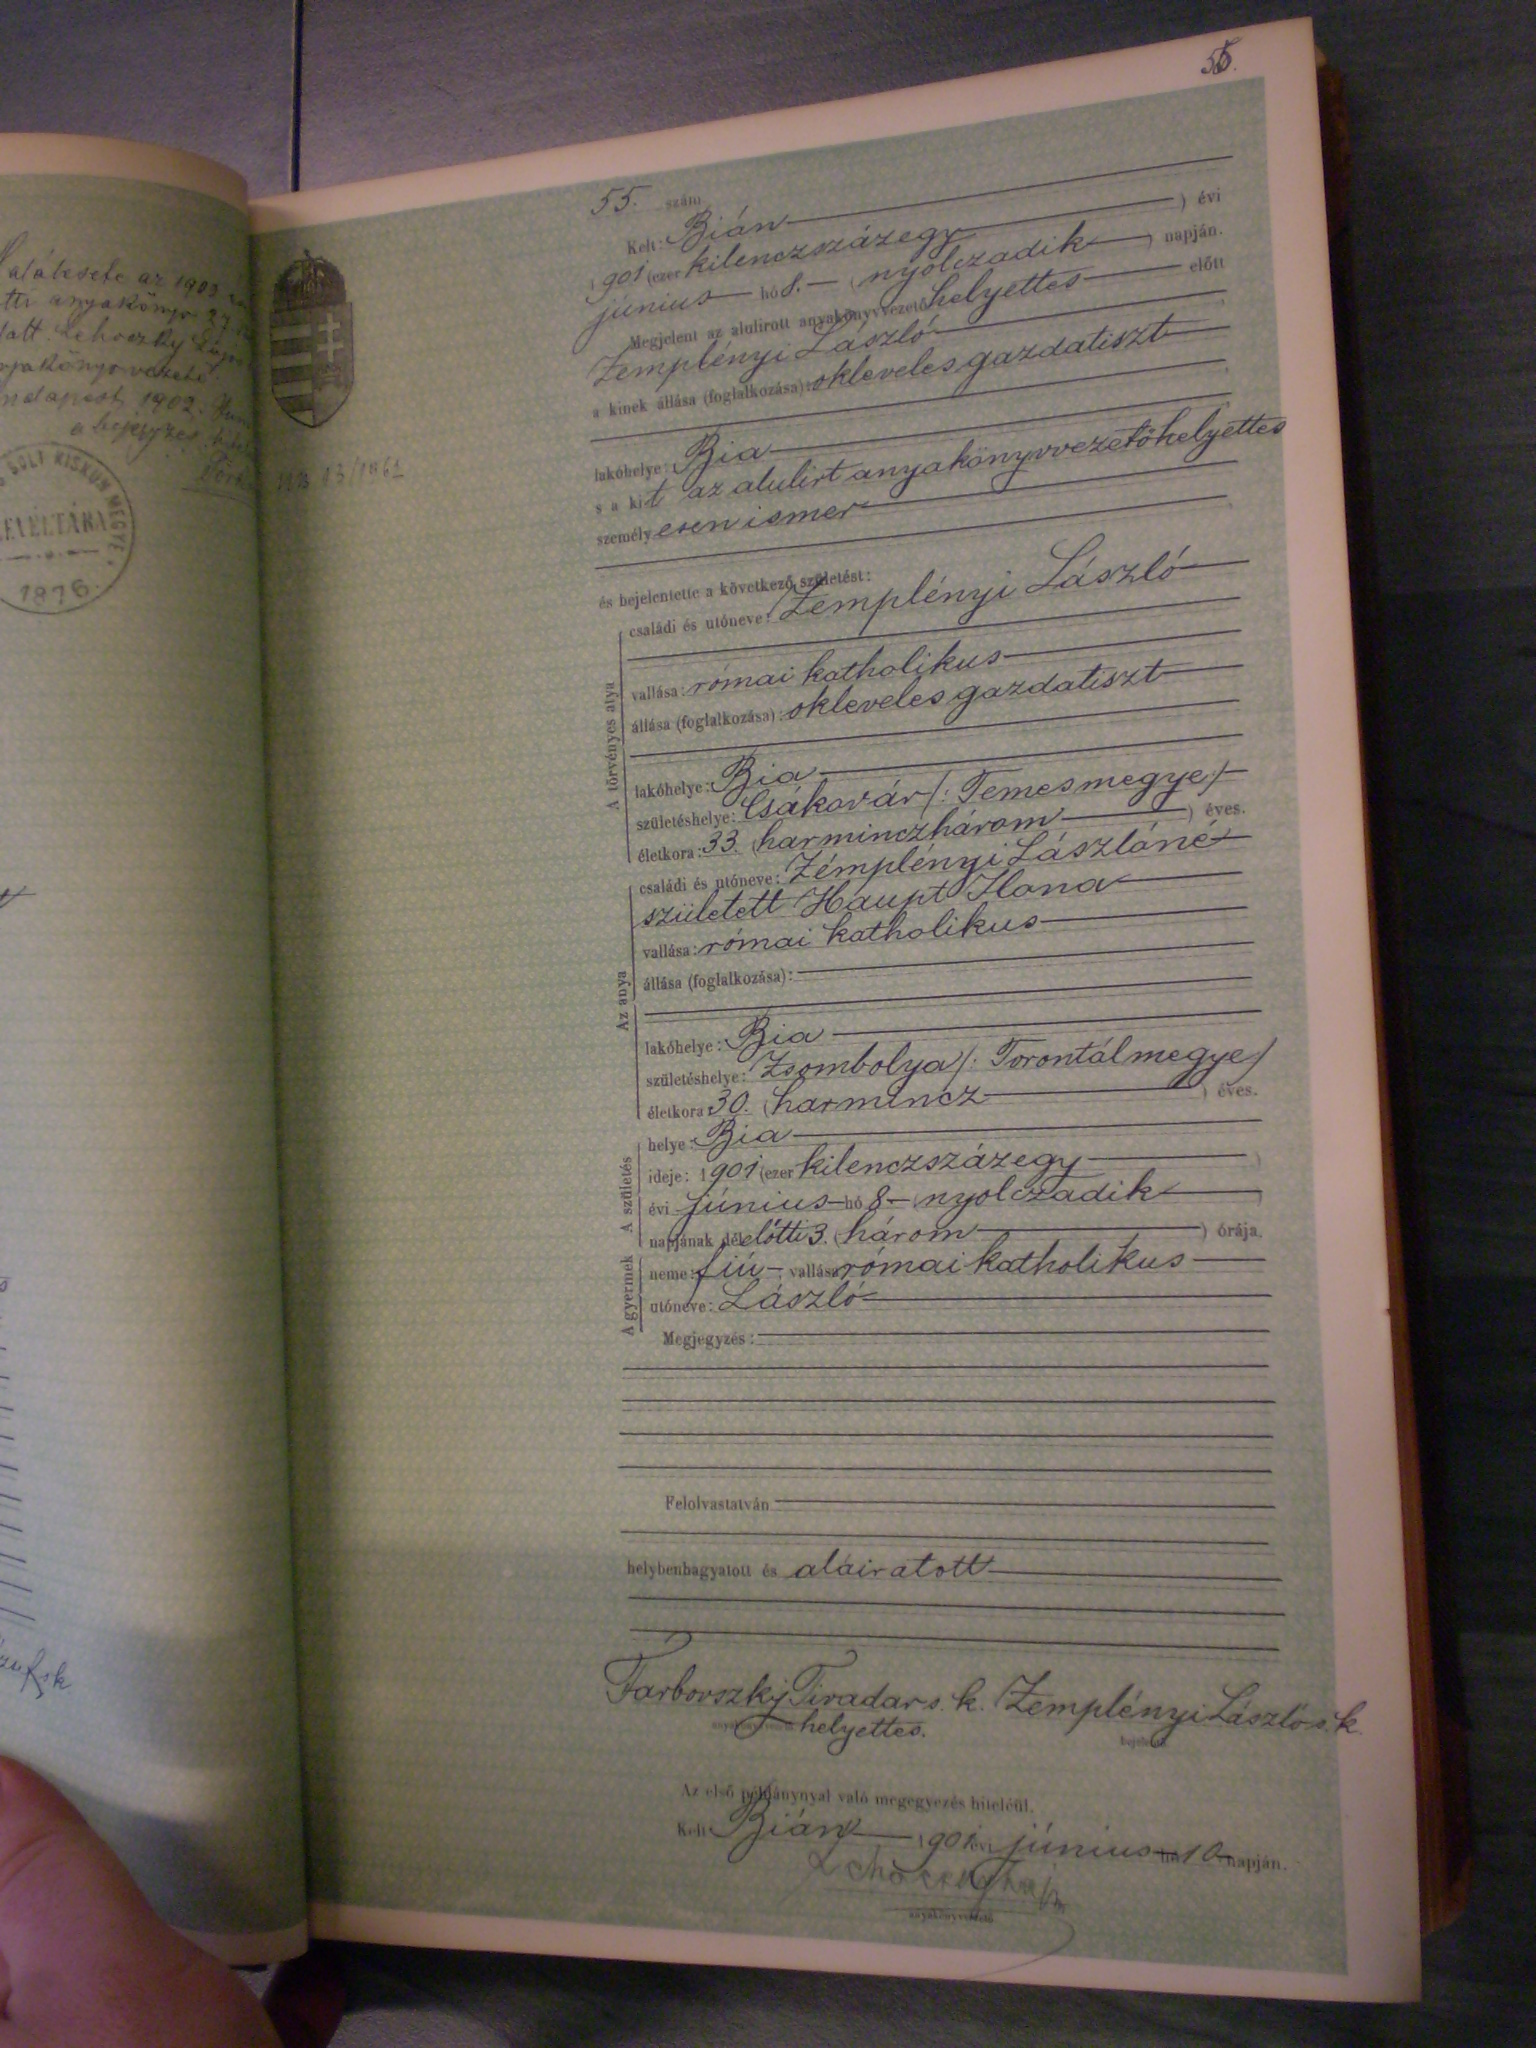 55.
55. szám
Kelt: Bián
1901 (ezer kilenczszázegy ) évi
június hó 8. (nyolczadik ) napján.
Megjelent az alulirott anyakönyvvezető helyettes előtt
Zemplényi László
a kinek állása (foglalkozása): okleveles gazdatiszt
lakóhelye: Bia
s a kit az alulirt anyakönyvvezetőhelyettes
személyesen ismer
és bejelentette a következő születést:
A törvényes atya
családi és utóneve: Zemplényi László
vallása: római katholikus
állása (foglalkozása): okleveles gazdatiszt
lakóhelye: Bia
születéshelye: Csákovár /: Temesmegye:/
életkora: 33. (harminczhárom ) éves.
Az anya
családi és utóneve: Zemplényi Lászlóné
született Haupt Ilona
vallása: római katholikus
állása (foglalkozása):
lakóhelye: Bia
születéshelye: Zsombolya /: Torontálmegye/
életkora 30. (harmincz ) éves.
A születés
helye: Bia
ideje: 1901 (ezer kilenczszázegy )
évi június hó 8 (nyolczadik )
napjának délelőtti 3. (három ) órája.
A gyermek
neme: fiú ; vallása római katholikus
utóneve: László
Megjegyzés:
Felolvastatván
helybenhagyatott és aláiratott
Farbovszky Tivadar s. k. Zemplényi László s. k.
anyakönyvvezető helyettes. bejelentő
Az első példánynyal való megegyezés hiteléül.
Kelt: Bián 1901 évi június hó 10 napján.
anyakönyvvezető
az 1902
anyakönyv
anyakönyvvezető
1902.
a bejegyzés
SOLT KISKUN MEGYE
LEVÉLTÁRA
1876
13/1961